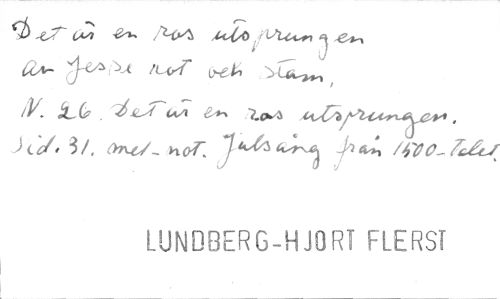 Det är en ros utsprungen
av Jesse rot och stam,
N. 26. Det är en ros utsprungen.
Sid. 31. mel-not. Julsång från 1500-talet.
LUNDBERG-HJORT FLERST